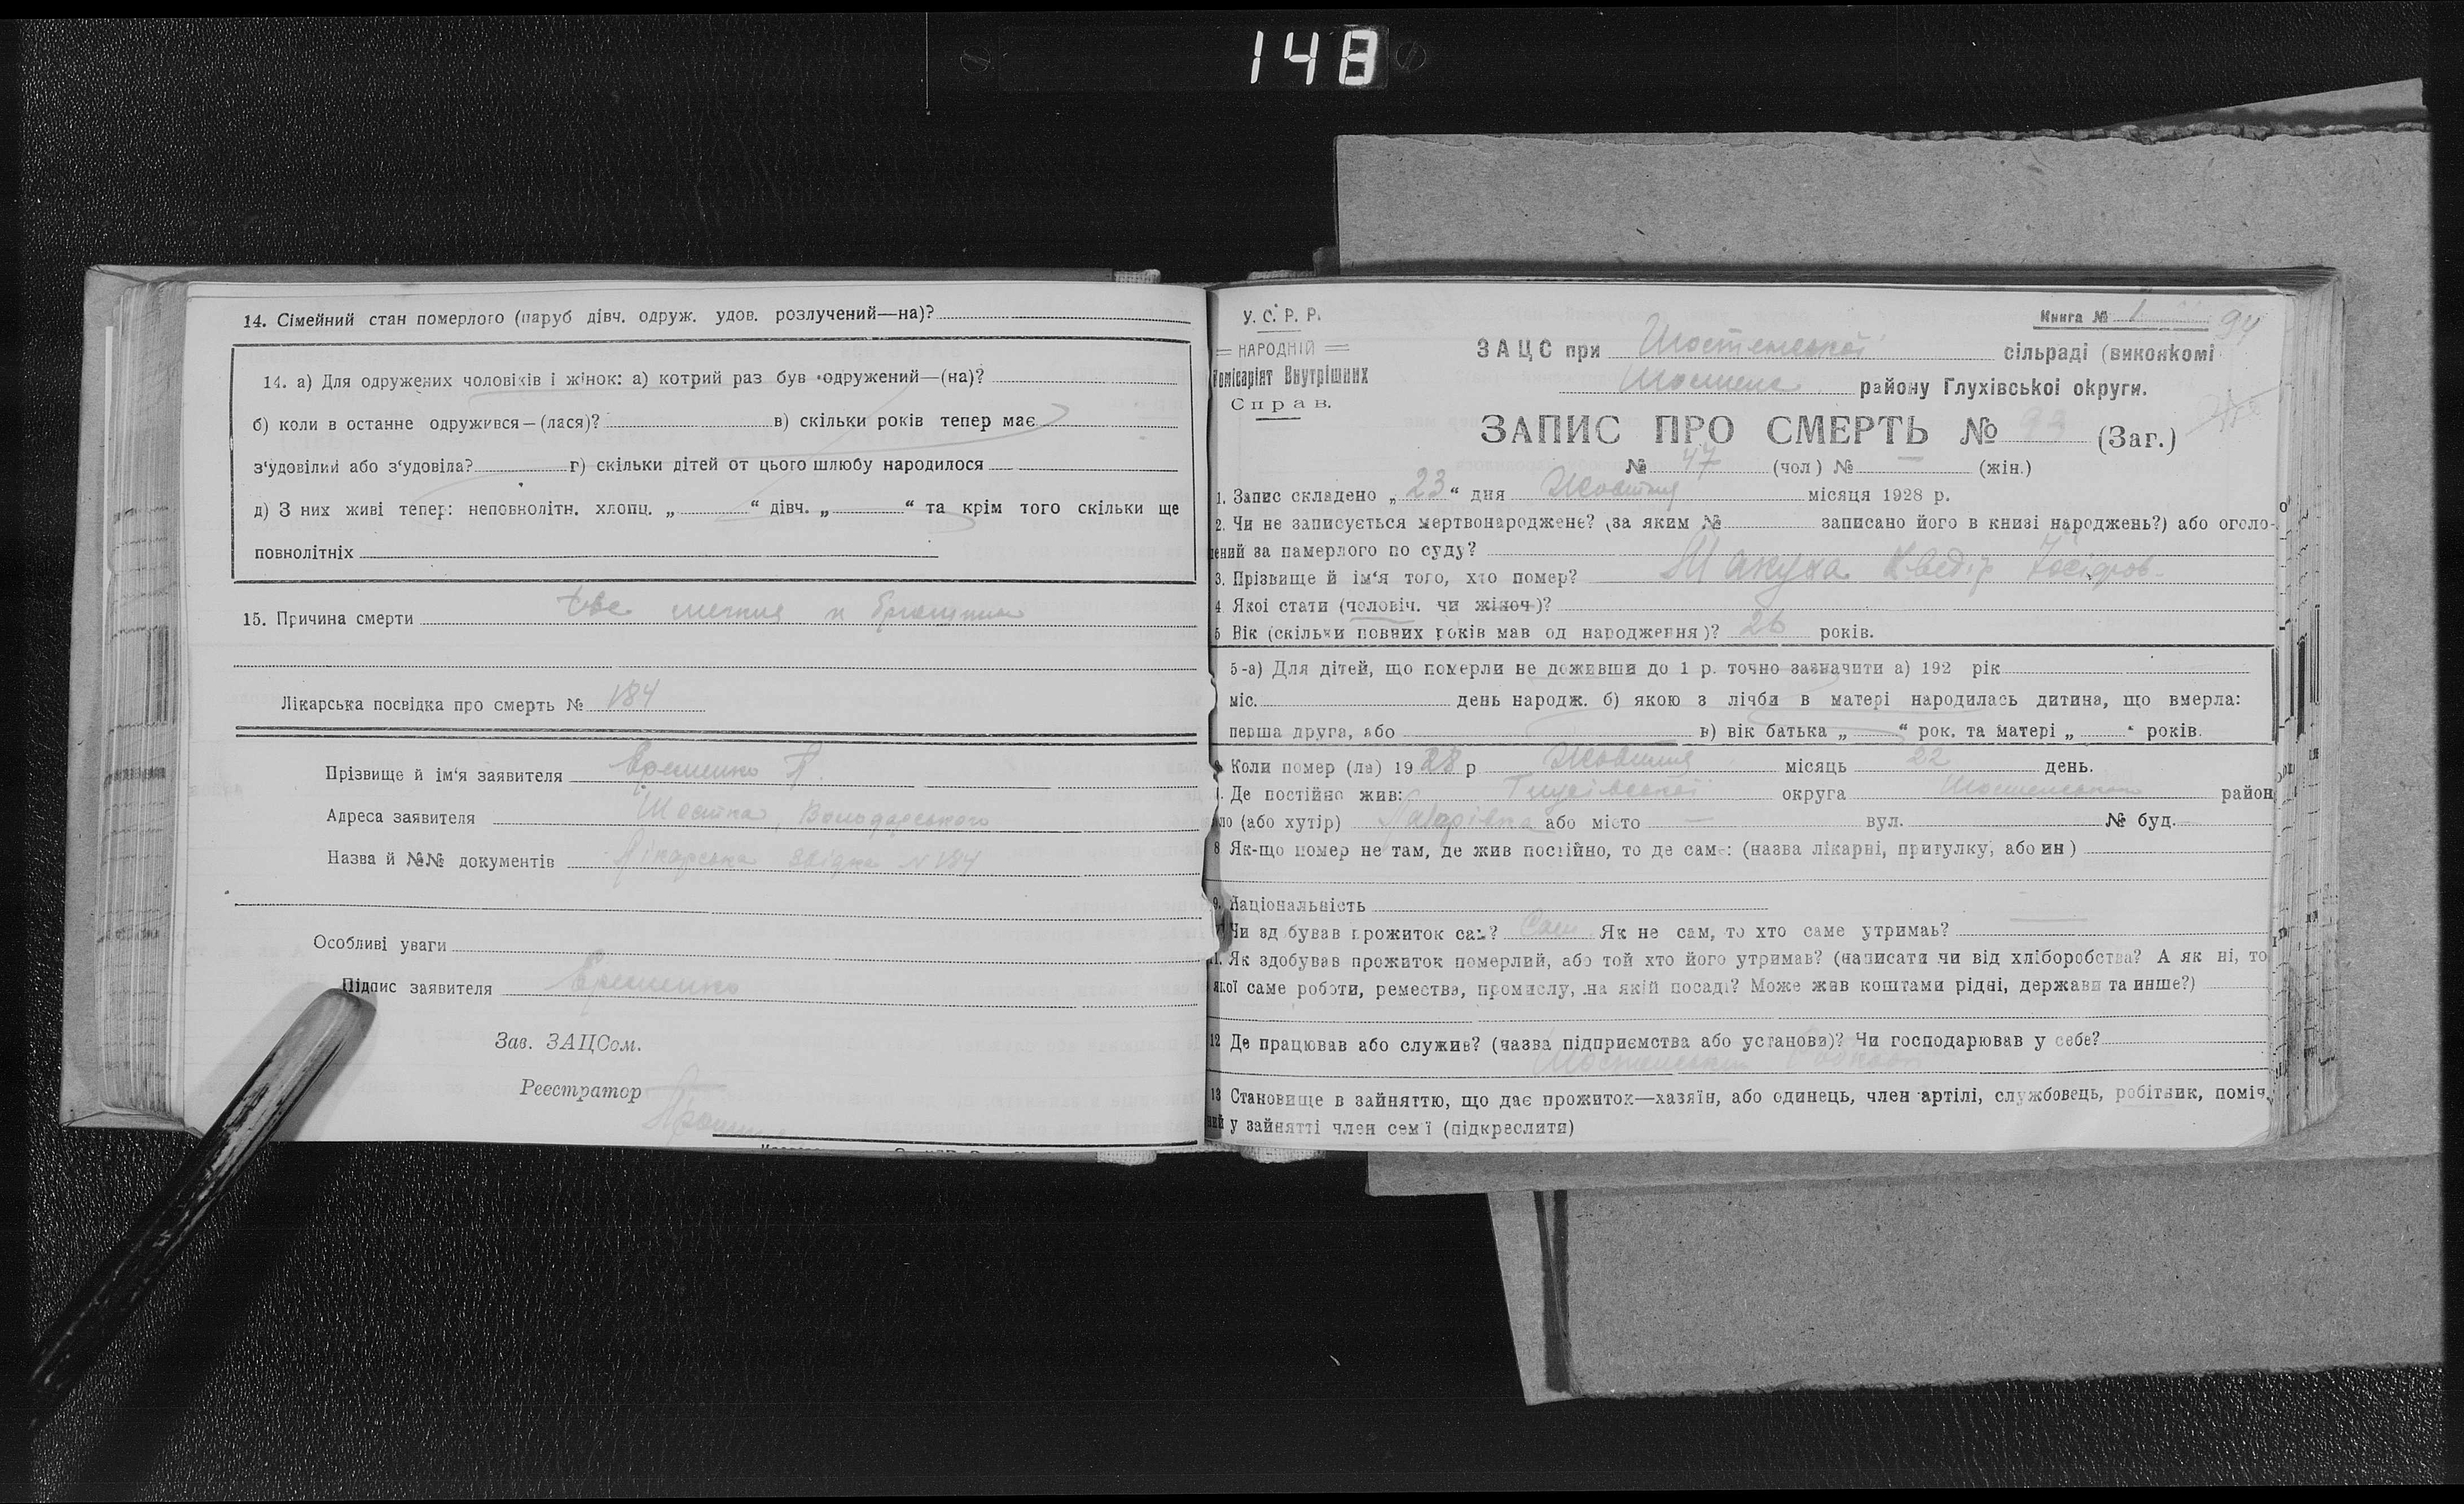 148
14. Сімейний стан померлого (паруб дівч. одруж. удов. розлучений—на)?
14. а) Для одружених чоловіків і жінок: а) котрий раз був одружений—(на)?
б) коли в останне одружився—(лася)? в) скільки років тепер має
з‘удовілий або з‘удовіла? г) скільки дітей от цього шлюбу народилося
д) З них живі тепер: неповнолітн. хлопц. „ “ дівч. „ “ та крім того скільки ще
повнолітніх
15. Причина смерти
Лікарська посвідка про смерть № 184
Прізвище й ім‘я заявителя Єременко
Адреса заявителя Шостка, Володарського
Назва й №№ документів Лікарська № 184
Особливі уваги
Підпис заявителя Єременко
Зав. ЗАЦСом.
Реєстратор
У. С. Р. Р.
НАРОДНІЙ
Комісаріят Внутрішних
Справ.
Книга № 1
94
ЗАЦС при Шостенської сільраді (виконкомі
району Глухівської округи.
ЗАПИС ПРО СМЕРТЬ № 93 (Заг.)
№ 47 (чол) № — (жін.)
1. Запис складено „ 23 “ дня Жовтня місяця 1928 р.
2. Чи не записується мертвонароджене? (за яким № записано його в книзі народжень?) або оголо-
ений за памерлого по суду?
3. Прізвище й ім‘я того, хто помер? Макуха Хведір
4 Якої стати (чоловіч. чи жіноч)?
5 Вік (скільки повних років мав од народження)? 26 років.
5-а) Для дітей, що померли не доживши до 1 р. точно зазначити а) 192 рік
міс. день народж. б) якою з лічби в матері народилась дитина, що вмерла:
перша друга, або в) вік батька „ “ рок. та матері „ “ років.
Коли помер (ла) 19 28 р Жовтня місяць 22 день.
Де постійно жив: Глухівської округа район
ло (або хутір) або місто — вул. № буд.
8 Як-що помер не там, де жив постійно, то де саме: (назва лікарні, притулку, або ин)
9. Національність
Чи здобував прожиток сам? Сам Як не сам, то хто саме утримав?
11. Як здобував прожиток померлий, або той хто його утримав? (написати чи від хліборобства? А як ні, то
якої саме роботи, ремества, промислу, на якій посаді? Може жив коштами рідні, держави та инше?)
12 Де працював або служив? (назва підприємства або установи)? Чи господарював у себе?
13 Становище в зайняттю, що дає прожиток—хазяїн, або одинець, член артілі, службовець, робітник, поміч.
ний у зайнятті член сем‘ї (підкреслити)